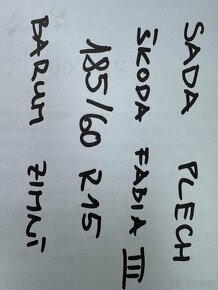 SADA PLECH
ŠKODA FABIA III
185/60 R15
BARUM ZIMNÍ